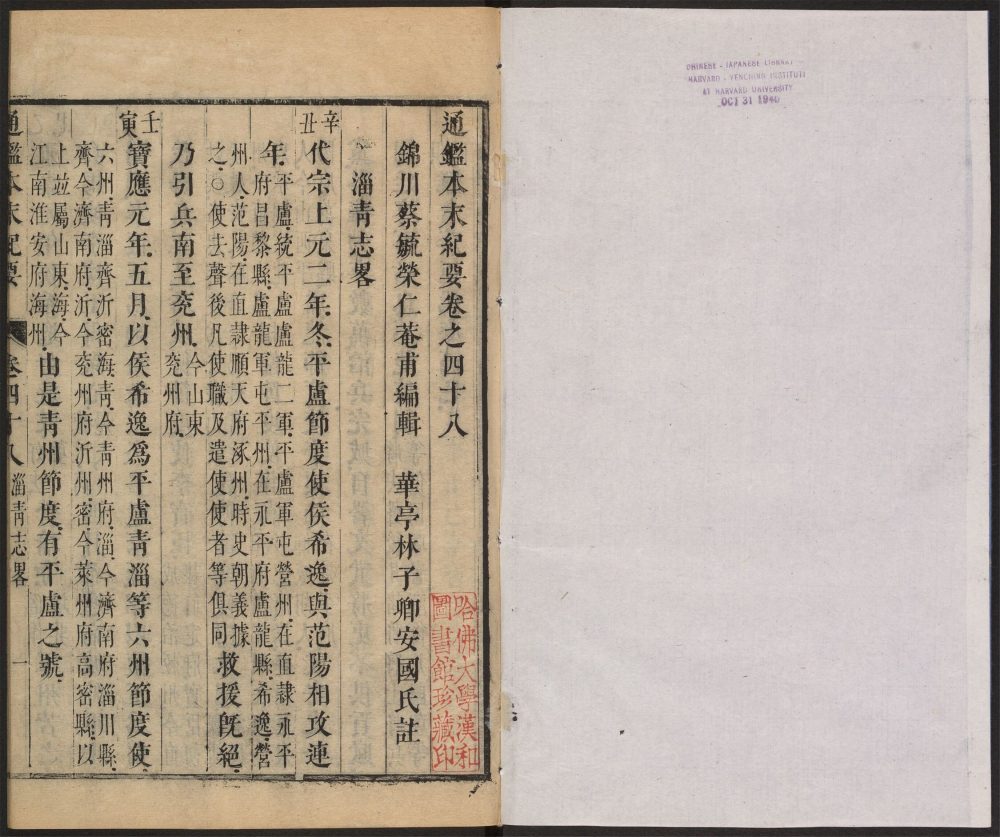 CHINESE - JAPANESE LIBRARY
HARVARD - YENCHING INSTITUTE
AT HARVARD UNIVERSITY
OCT 31 1940
通鑑本末紀要卷之四十八
錦川蔡毓榮仁菴甫編輯 華亭林子卿安國氏註
哈佛大學漢和
圖書館珍藏印
淄青志畧
辛丑
代宗上元二年冬平盧節度使侯希逸與范陽相攻連
年
平盧統平盧盧龍二軍平盧軍屯營州在直隸永平
府昌黎縣盧龍軍屯平州在永平府盧龍縣希逸營
州人范陽在直隸順天府涿州時史朝義據
之○使去聲後凡使職及遣使使者等俱同
救援旣絕
乃引兵南至兖州
今山東
兖州府
壬寅
寶應元年五月以侯希逸爲平盧青淄等六州節度使
六州青淄齊沂密海青今青州府淄今濟南府淄川縣
齊今濟南府沂今兖州府沂州密今萊州府高密縣以
上竝屬山東海今
江南淮安府海州
由是青州節度有平盧之號
通鑑本末紀要 卷四十八 淄青志畧 一